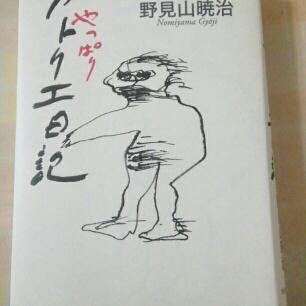 やっぱり
アトリエ日記
野見山暁治
Nomiyama Gyōji